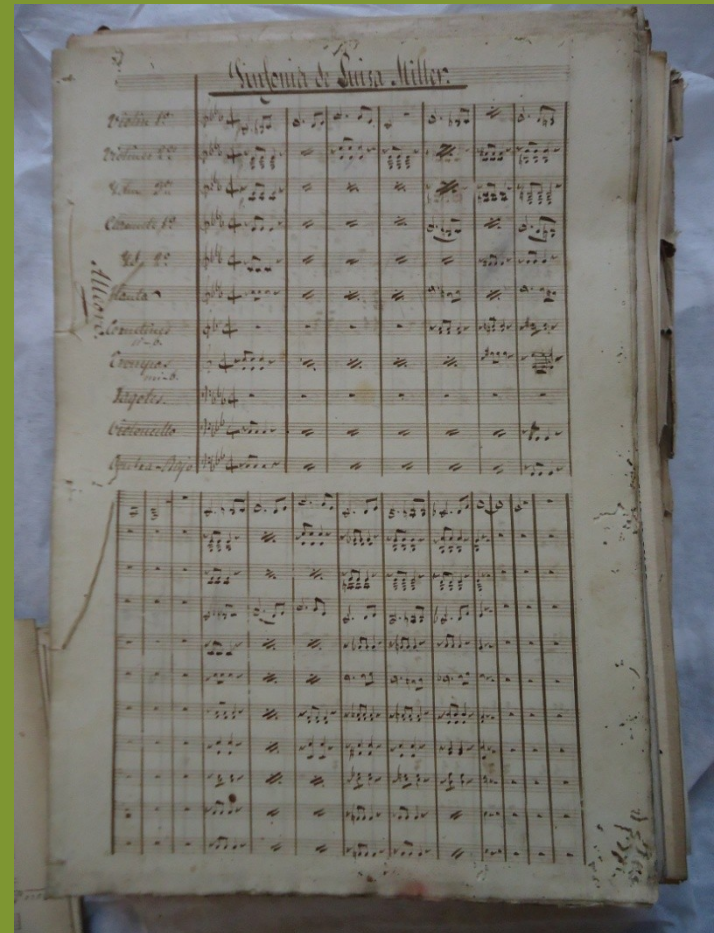 Sinfonia de Luisa Miller.
Violin 1º
Violines 2º
Clarinete 1º
Id. 2º
Flauta
Cornetines
si-b.
Trompas
mi-b.
Fagotes.
Violoncello
Contra-Bajo